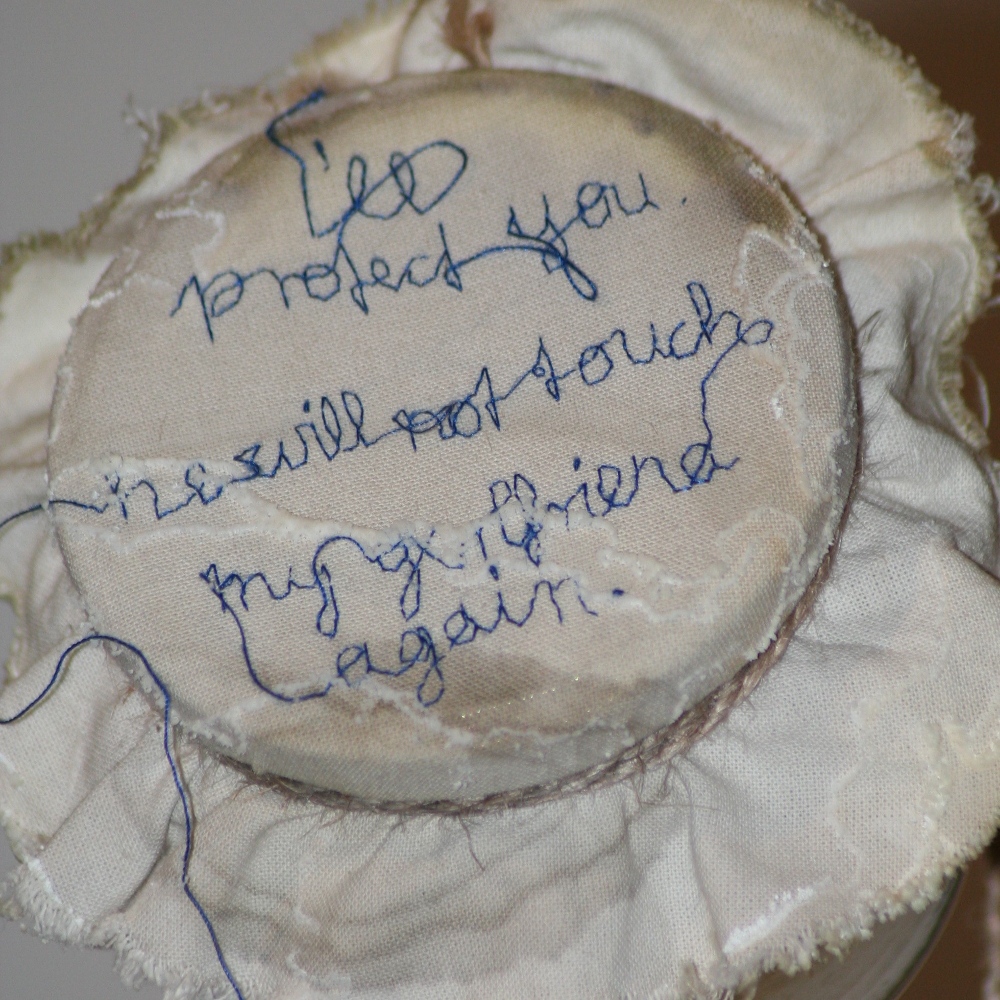 I'll
protect you.
he will not touch
my girlfriend
again.